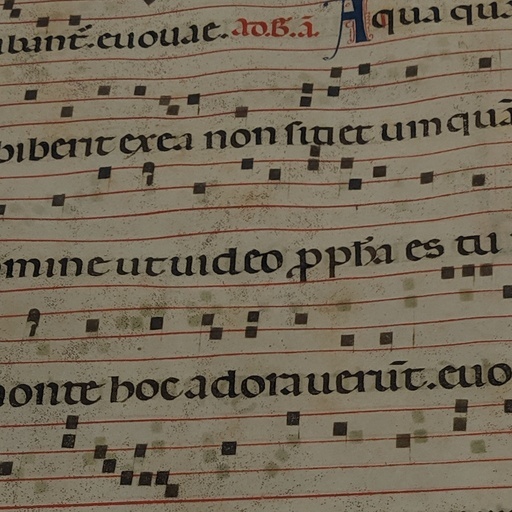 abunt̄. euouae. ad.B.ā. Aqua quā
biberit ex ea non sitiet umquā
omine ut uideo ꝓph̄a es tu
monte hoc adorauerūt̄. euo